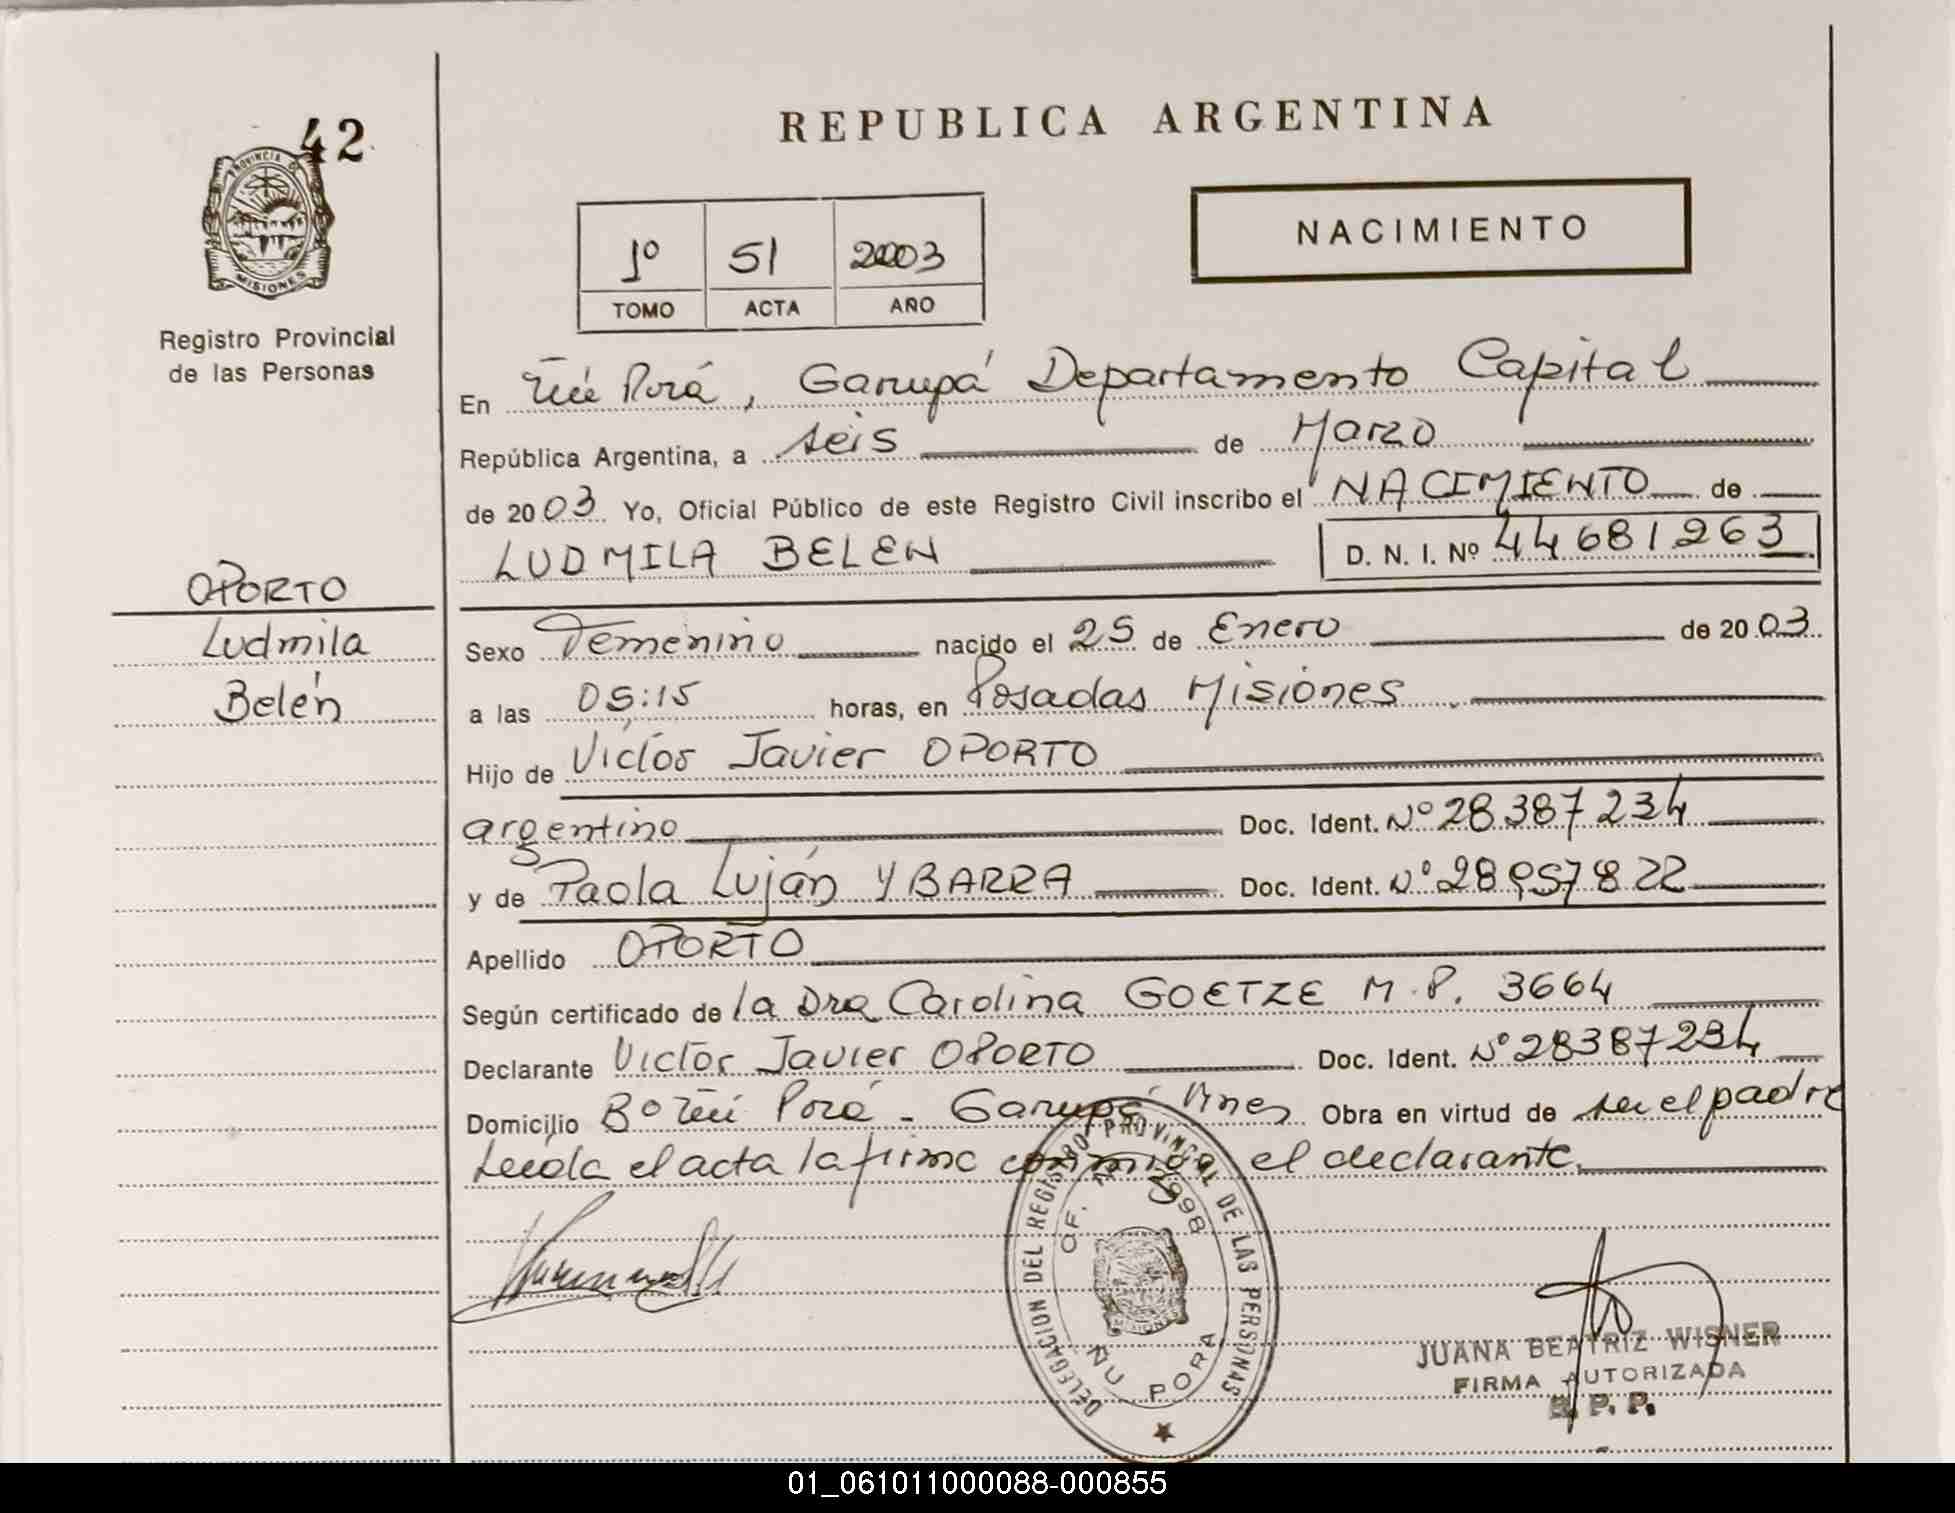 42
PROVINCIA DE
MISIONES
Registro Provincial
de las Personas
OPORTO
Ludmila
Belén
REPUBLICA ARGENTINA
1º 51 2003
TOMO ACTA AÑO
NACIMIENTO
En Ñú Porá, Garupá Departamento Capital
República Argentina, a seis de Marzo
de 2003 Yo, Oficial Público de este Registro Civil inscribo el NACIMIENTO de
LUDMILA BELEN D. N. I. Nº 44681263
Sexo Femenino nacido el 25 de Enero de 2003
a las 05:15 horas, en Posadas Misiones
Hijo de Victor Javier OPORTO
argentino Doc. Ident. Nº 28387234
y de Paola Luján YBARRA Doc. Ident. Nº 28957822
Apellido OPORTO
Según certificado de la Dra Carolina GOETZE M.P. 3664
Declarante Victor Javier OPORTO Doc. Ident. Nº 28387234
Domicilio Bº Ñú Porá - Garupá Mnes Obra en virtud de ser el padre
Leída el acta la firma conmigo el declarante.
DELEGACION DEL REGISTRO PROVINCIAL DE LAS PERSONAS
OF. 998
ÑU PORA
JUANA BEATRIZ WISNER
FIRMA AUTORIZADA
R. P. P.
01_061011000088-000855